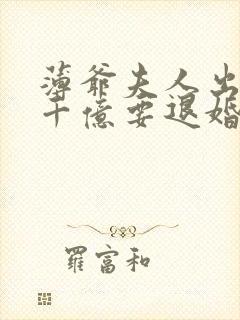 薄爺夫人出
十億要退婚
羅富和